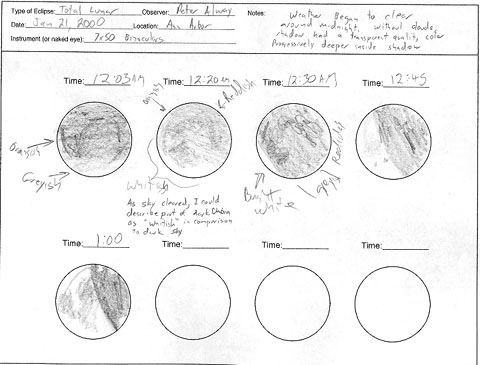 Type of Eclipse: Total Lunar Observer: Peter Alway
Date: Jan 21, 2000 Location: Ann Arbor
Instrument (or naked eye): 7x50 Binoculars
Notes: Weather Began to clear
around midnight. without clouds,
shadow had a transparent quality, color
Progressively deeper inside shadow
Time: 12:03 AM Time: 12:20 AM Time: 12:30 AM Time: 12:45
Reddish
Greyish
Whitish
Bright
white
grey
As sky cleared, I could
describe part of dark Umbra
as "whitish" in comparison
to dark sky
Time: 1:00 Time: Time: Time: